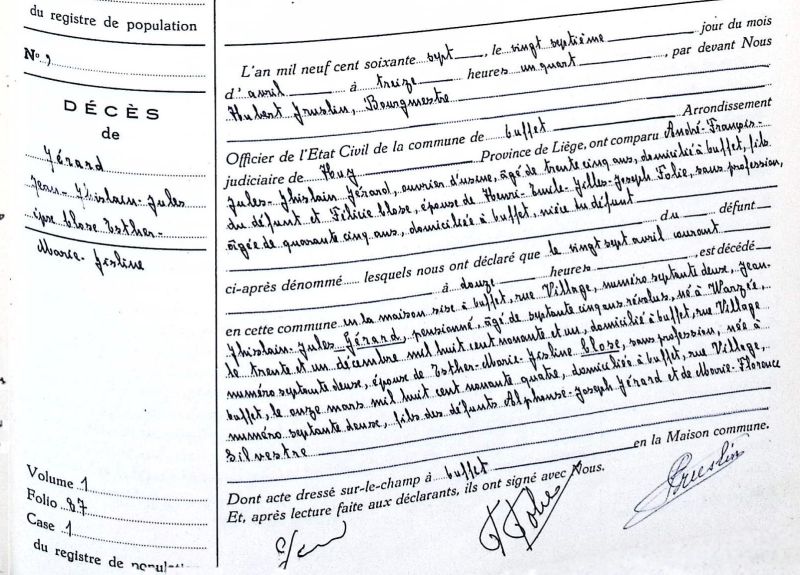 du registre de population
Nº 9
DÉCÈS
de
Gérard
Jean-Ghislain-Jules
épse Close Esther-
Marie-Gisline
Volume 1
Folio 87
Case 1
du registre de
L'an mil neuf cent soixante sept, le vingt septième jour du mois
d'avril à treize heures un quart, par devant Nous
Hubert Gruslin, Bourgmestre
Officier de l'Etat Civil de la commune de Buffet Arrondissement
judiciaire de Huy Province de Liége, ont comparu André-François-
Jules-Ghislain Gérard, ouvrier d'usine, âgé de trente cinq ans, domicilié à Buffet, fils
du défunt et Félicie Close, épouse de Henri-Emile-Gilles-Joseph Folie, sans profession,
âgée de quarante cinq ans, domiciliée à Buffet, nièce du défunt
ci-après dénommé lesquels nous ont déclaré que le vingt sept avril courant du défunt
à douze heures, est décédé
en cette commune en la maison sise à Buffet, rue Village, numéro septante deux, Jean-
Ghislain-Jules Gérard, pensionné, âgé de septante cinq ans révolus, né à Warzée,
le trente et un décembre mil huit cent nonante et un, domicilié à Buffet, rue Village
numéro septante deux, époux de Esther-Marie-Gisline Close, sans profession, née à
Buffet, le onze mars mil huit cent nonante quatre, domiciliée à Buffet, rue Village,
numéro septante deux, fils des défunts Alphonse-Joseph Gérard et de Marie-Florence
Silvestre
Dont acte dressé sur-le-champ à Buffet en la Maison commune.
Et, après lecture faite aux déclarants, ils ont signé avec Nous.
F Folie
Gruslin